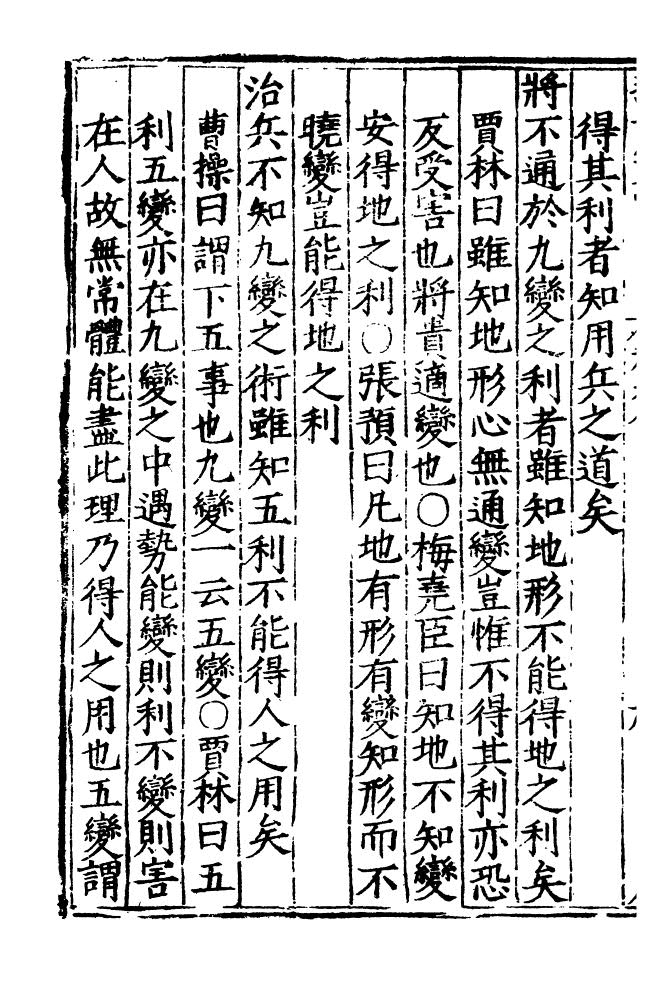 得其利者知用兵之道矣
將不通於九變之利者雖知地形不能得地之利矣
賈林曰雖知地形心無通變豈惟不得其利亦恐
反受害也將貴適變也○梅堯臣曰知地不知變
安得地之利○張預曰凡地有形有變知形而不
曉變豈能得地之利
治兵不知九變之術雖知五利不能得人之用矣
曹操曰謂下五事也九變一云五變○賈林曰五
利五變亦在九變之中遇勢能變則利不變則害
在人故無常體能盡此理乃得人之用也五變謂